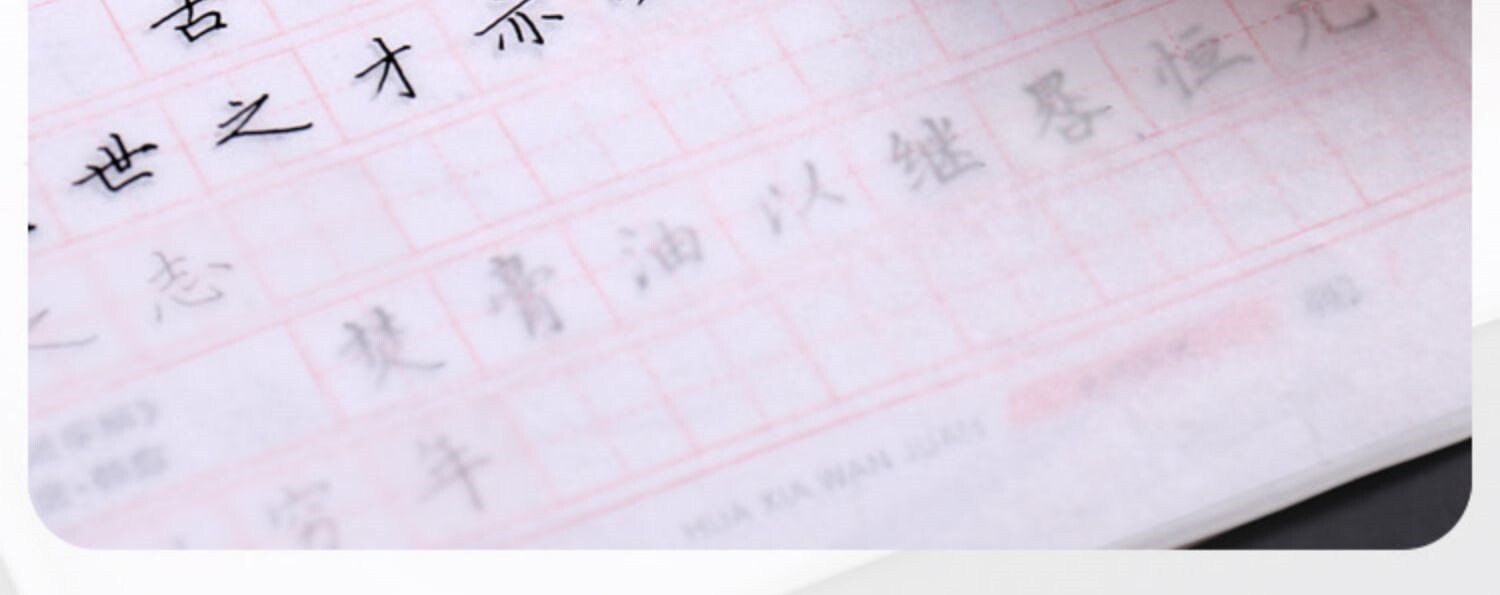 古
世之才亦
之志
焚膏油以继晷恒兀
穷年
HUA XIA WAN JUAN